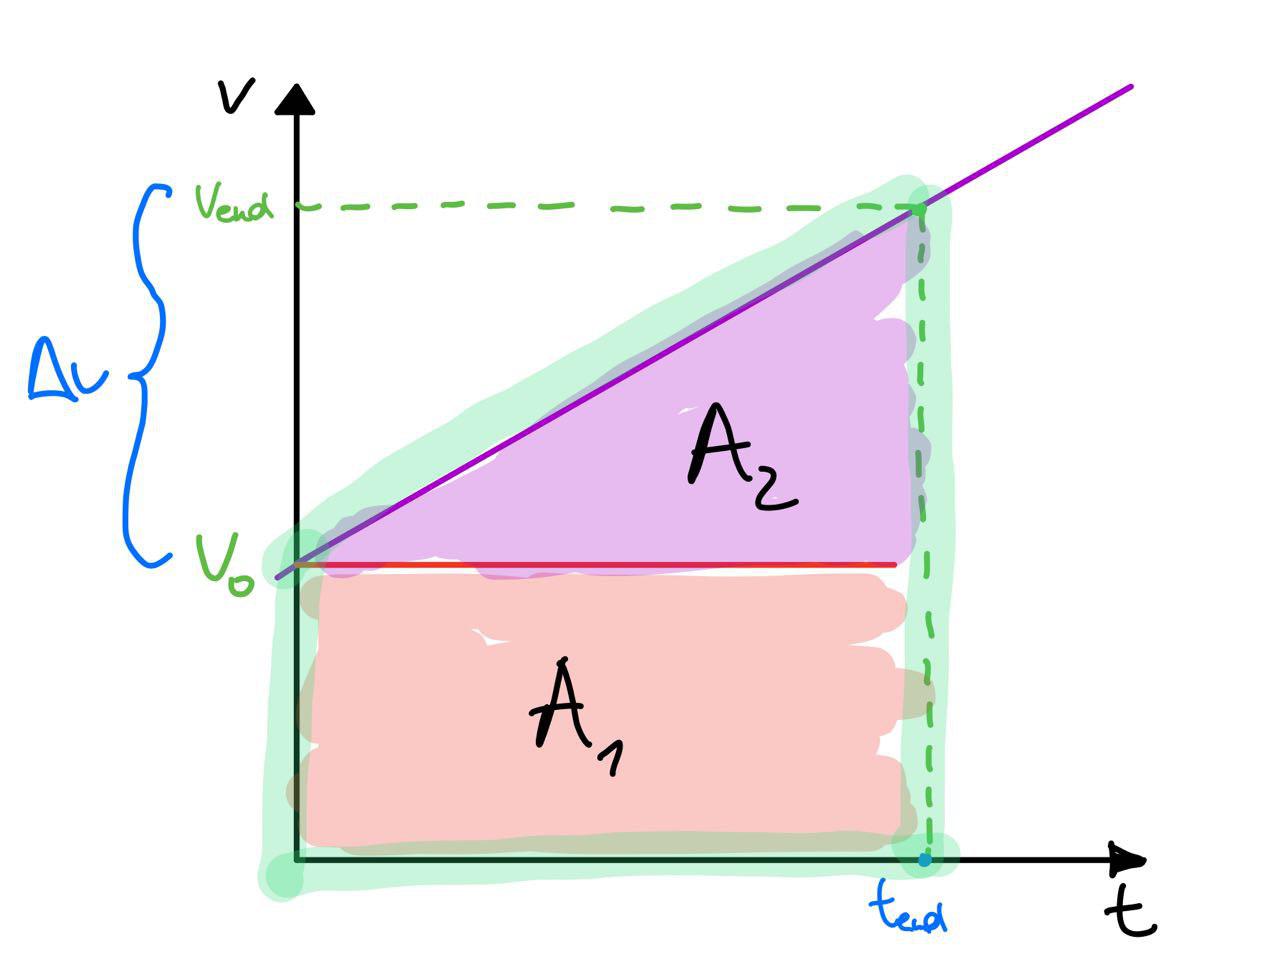 v
Vend
Δv
V₀
A₂
A₁
tend
t